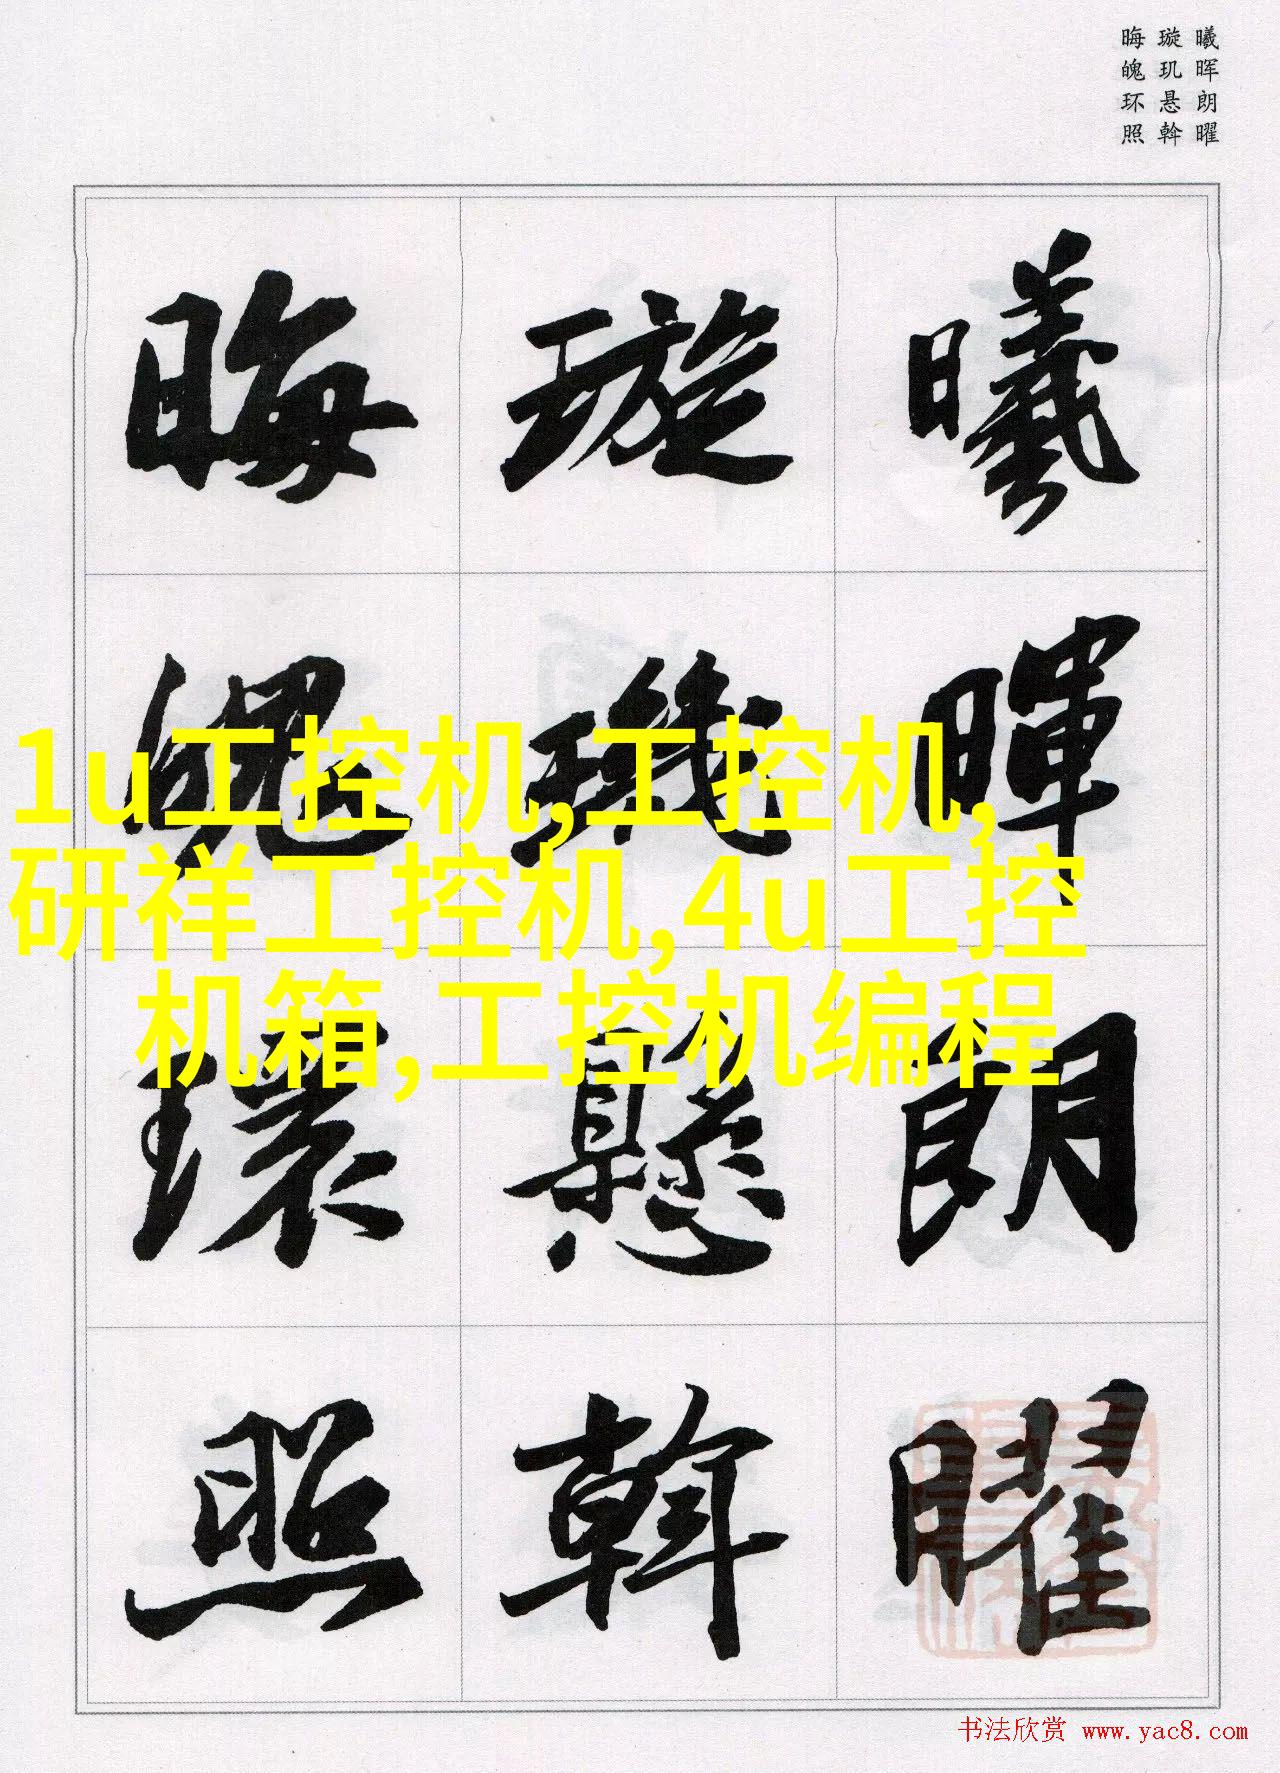 曦晖朗曜
璇玑悬斡
晦魄环照
曦暉朗曜
璇璣懸斡
晦魄環照
1u工控机,工控机,
研祥工控机,4u工控
机箱,工控机编程
书法欣赏 www.yac8.com